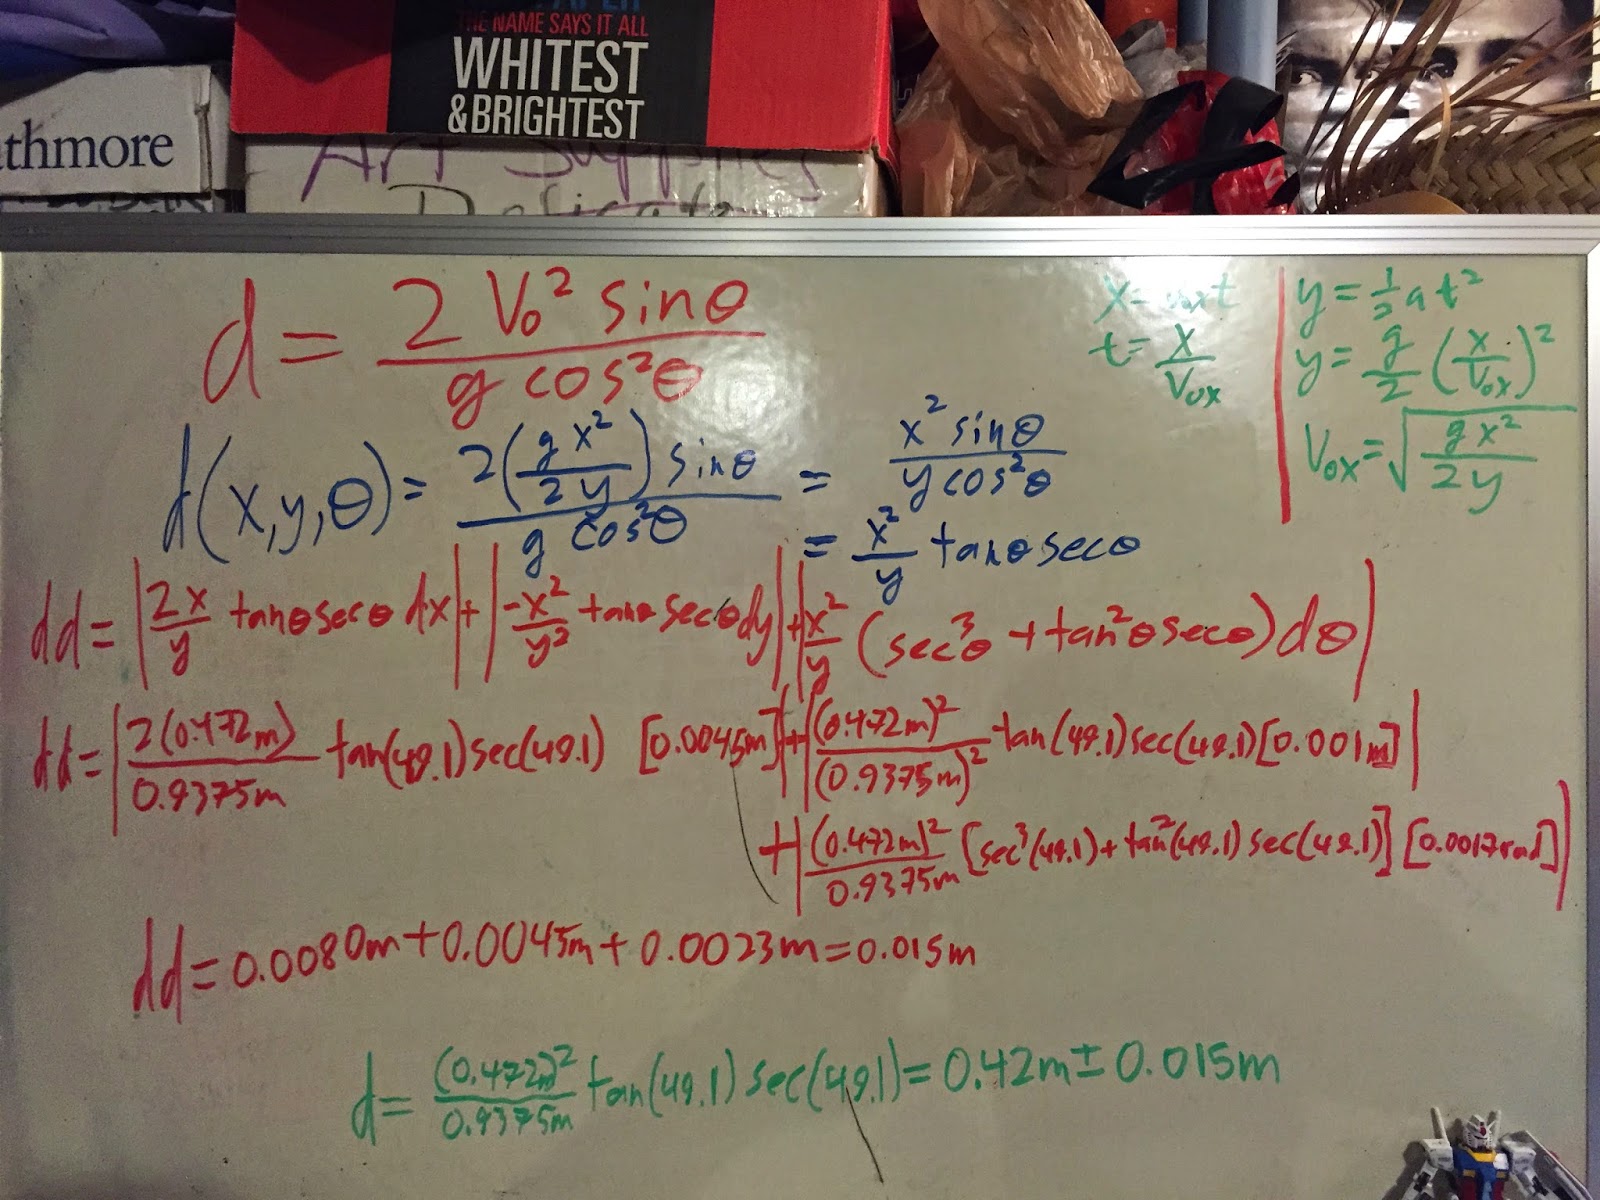 THE NAME SAYS IT ALL
WHITEST
& BRIGHTEST
thmore
Art Supplies
d = 2 V₀² sinθ / g cos²θ
x = v₀ₓt
t = x / V₀ₓ
y = ½at²
y = g/2 (x/V₀ₓ)²
V₀ₓ = √(gx² / 2y)
d(x,y,θ) = 2(gx²/2y) sinθ / g cos²θ = x² sinθ / y cos²θ
= x²/y tanθ secθ
dd = |2x/y tanθ secθ dx| + |-x²/y² tanθ secθ dy| + |x²/y (sec³θ + tan²θ secθ) dθ|
dd = |2(0.472m)/0.9375m tan(49.1) sec(49.1) [0.0045m]| + |(0.472m)²/(0.9375m)² tan(49.1) sec(49.1) [0.001m]|
+ |(0.472m)²/0.9375m [sec³(49.1) + tan²(49.1) sec(49.1)] [0.0017rad]|
dd = 0.0080m + 0.0045m + 0.0023m = 0.015m
d = (0.472m)²/0.9375m tan(49.1) sec(49.1) = 0.42m ± 0.015m